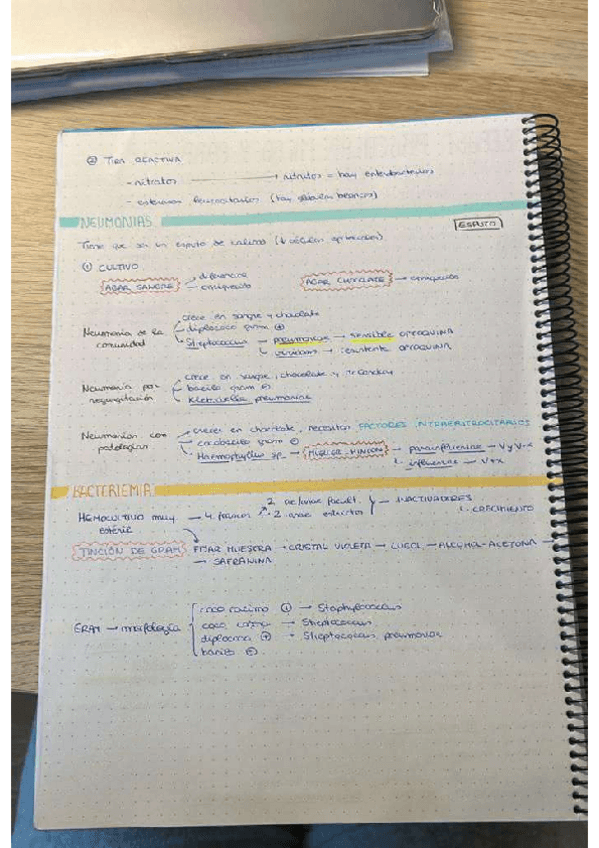 ② TIRA REACTIVA
- nitratos → nitritos = hay enterobacterias
- esterasas leucocitarias (hay glóbulos blancos)
NEUMONIAS
ESPUTO
Tiene que ser un esputo de calidad (↓ células epiteliales)
① CULTIVO
AGAR SANGRE diferencia
enriquecido
AGAR CHOCOLATE — enriquecido
Neumonía de la comunidad
crece en sangre y chocolate
diplococo gram ⊕
Streptococcus — pneumoniae → sensible OPTOQUINA
viridans → resistente OPTOQUINA
Neumonía por regurgitación
crece en sangre, chocolate y McConkey
bacilo gram ⊖
Klebsiella pneumoniae
Neumonías con patologías
crecen en chocolate, necesitan FACTORES INTRAERITROCITARIOS
cocobacilo gram ⊖
Haemophyllus sp. → MUELLER-HINTON → parainfluenzae → V y V+X
influenzae → V+X
BACTERIEMIA
HEMOCULTIVO muy estéril — 4 frascos
2 aerobios facult.
2 anae estrictos
INACTIVADORES
CRECIMIENTO
TINCIÓN DE GRAM FIJAR MUESTRA → CRISTAL VIOLETA → LUGOL → ALCOHOL-ACETONA →
→ SAFRANINA
GRAM → morfología
coco racimo ⊕ → Staphylococcus
coco → Streptococcus
⊕ → Streptococcus pneumoniae
bacilo ⊖